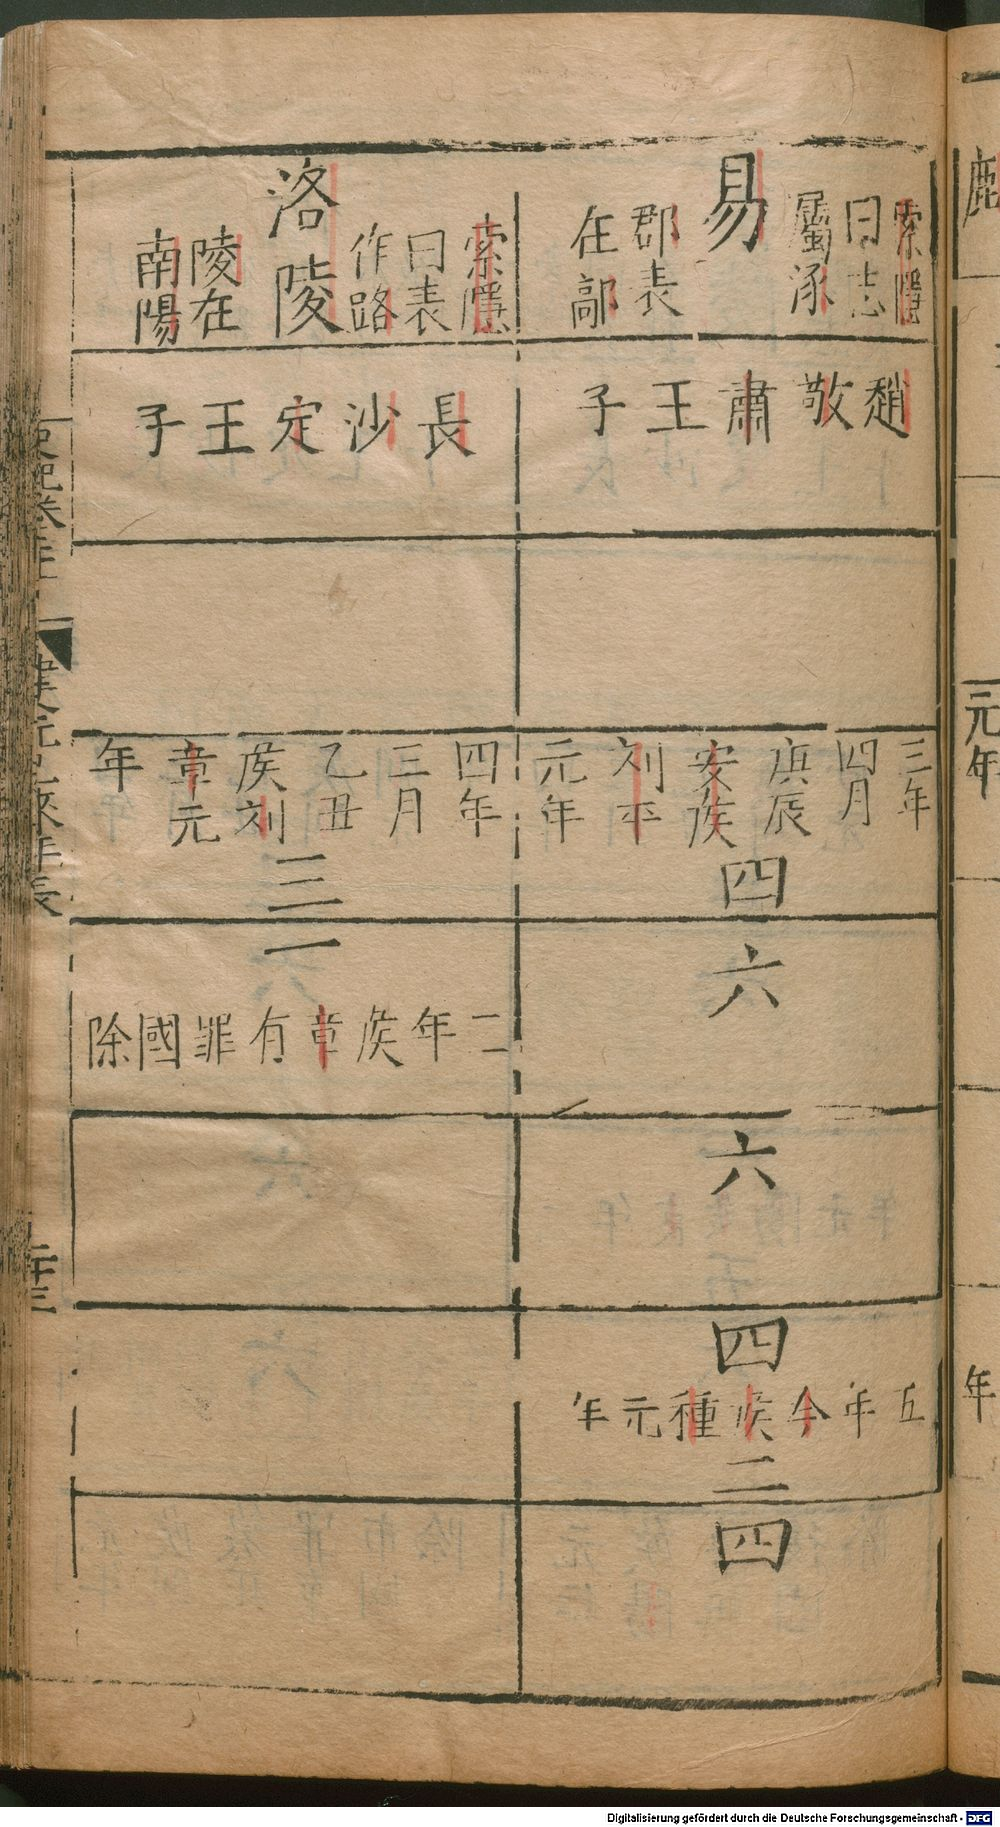 易
索隱
曰志
屬涿
郡表
在鄗
趙敬肅王子
三年
四月
庚辰
安侯
刘平
元年
四
六
六
四
五年今侯種元年
二
四
洛陵
索隱
曰表
作路
陵在
南陽
長沙定王子
四年
三月
乙丑
侯刘
章元
年
三
一
二年侯章有罪國除
年表
元年
年
Digitalisierung gefördert durch die Deutsche Forschungsgemeinschaft - DFG